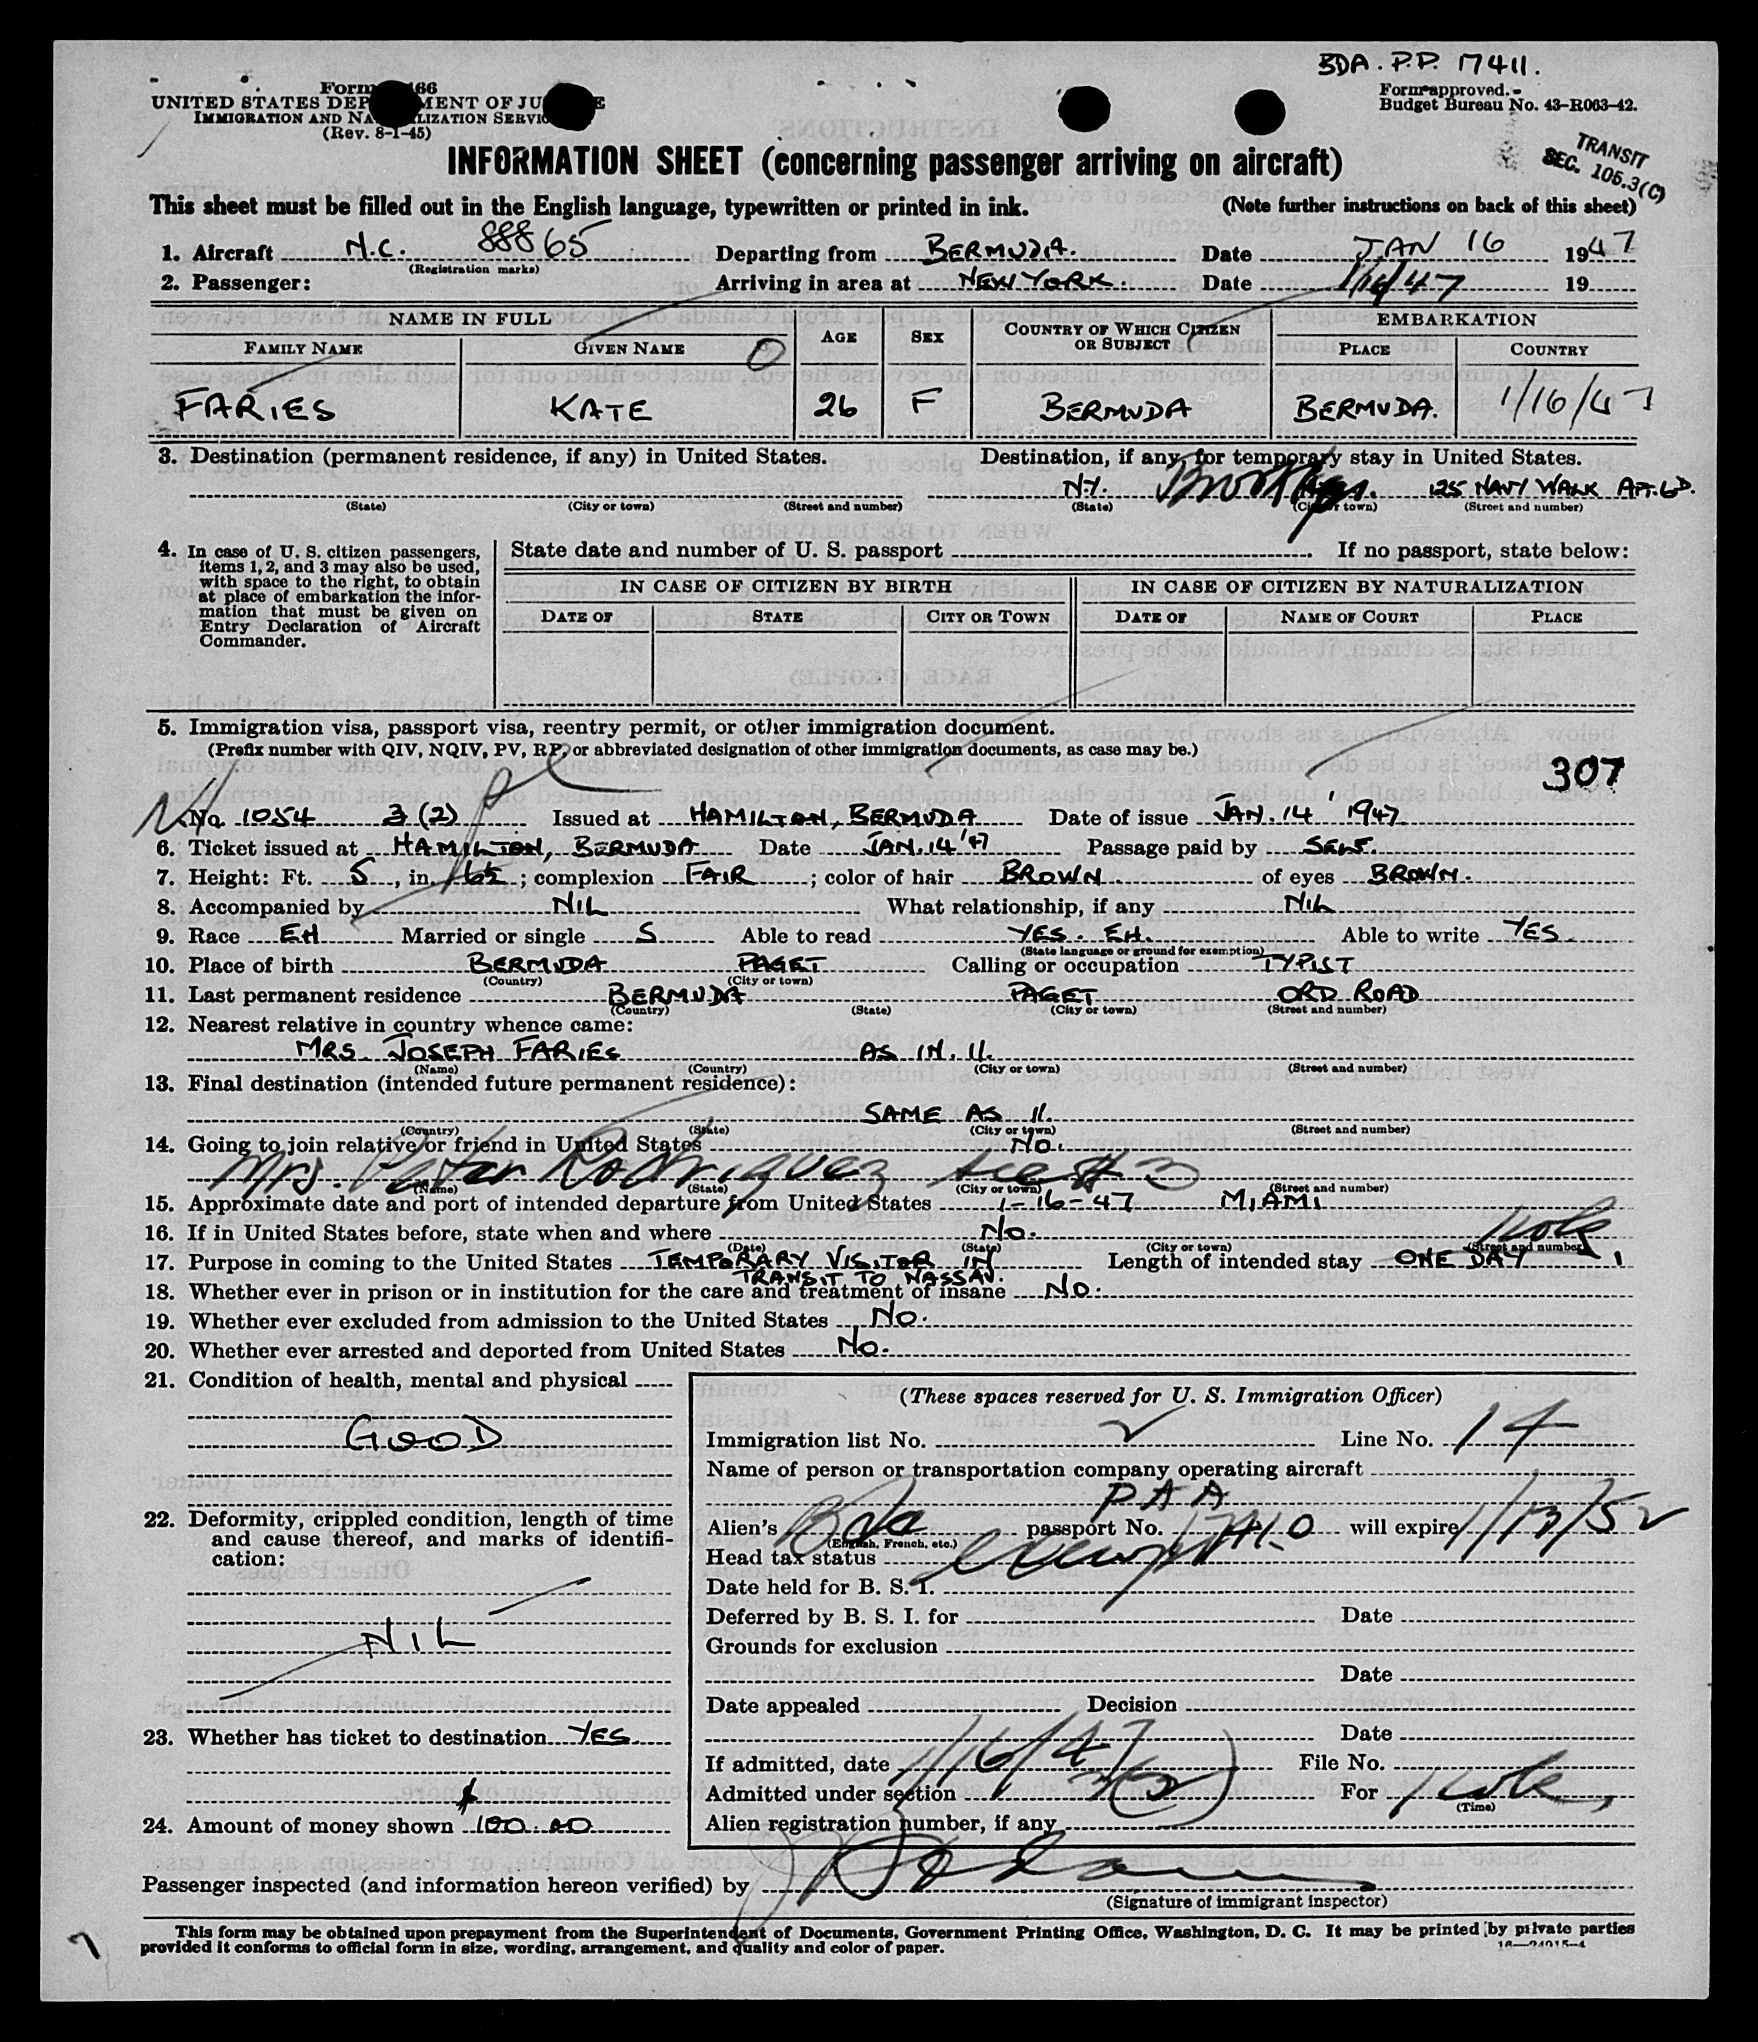 BDA. P.P. 17411.
Form 466
UNITED STATES DEPARTMENT OF JUSTICE
IMMIGRATION AND NATURALIZATION SERVICE
(Rev. 8-1-45)
Form approved.
Budget Bureau No. 43-R063-42.
TRANSIT
SEC. 105.3(C)
INFORMATION SHEET (concerning passenger arriving on aircraft)
This sheet must be filled out in the English language, typewritten or printed in ink. (Note further instructions on back of this sheet)
1. Aircraft N.C. 88865 Departing from BERMUDA. Date JAN 16 1947
(Registration marks)
2. Passenger: Arriving in area at NEW YORK. Date 1/16/47 19
NAME IN FULL AGE SEX COUNTRY OF WHICH CITIZEN OR SUBJECT EMBARKATION
FAMILY NAME GIVEN NAME PLACE COUNTRY
FARIES KATE 26 F BERMUDA BERMUDA. 1/16/47
3. Destination (permanent residence, if any) in United States. Destination, if any, for temporary stay in United States.
N.Y. 125 NAVY WALK APT. 6D.
(State) (City or town) (Street and number) (State) (City or town) (Street and number)
4. In case of U. S. citizen passengers, items 1, 2, and 3 may also be used, with space to the right, to obtain at place of embarkation the information that must be given on Entry Declaration of Aircraft Commander.
State date and number of U. S. passport If no passport, state below:
IN CASE OF CITIZEN BY BIRTH IN CASE OF CITIZEN BY NATURALIZATION
DATE OF STATE CITY OR TOWN DATE OF NAME OF COURT PLACE
5. Immigration visa, passport visa, reentry permit, or other immigration document.
(Prefix number with QIV, NQIV, PV, RP, or abbreviated designation of other immigration documents, as case may be.)
307
No. 1054 3(2) Issued at HAMILTON, BERMUDA Date of issue JAN. 14 ' 1947
6. Ticket issued at HAMILTON, BERMUDA Date JAN. 14 '47 Passage paid by SELF.
7. Height: Ft. 5, in. ; complexion FAIR; color of hair BROWN. of eyes BROWN.
8. Accompanied by NIL What relationship, if any NIL
9. Race EH Married or single S Able to read YES. EH. Able to write YES.
(State language or ground for exemption)
10. Place of birth BERMUDA PAGET Calling or occupation TYPIST
(Country) (City or town)
11. Last permanent residence BERMUDA PAGET ORD ROAD
(Country) (State) (City or town) (Street and number)
12. Nearest relative in country whence came:
MRS. JOSEPH FARIES AS IN. 11.
(Name) (Country) (City or town) (Street and number)
13. Final destination (intended future permanent residence):
SAME AS 11.
(Country) (State) (City or town) (Street and number)
14. Going to join relative or friend in United States NO.
Mrs. Rodriguez see #3
(Name) (State) (City or town) (Street and number)
15. Approximate date and port of intended departure from United States 1-16-47 MIAMI
16. If in United States before, state when and where NO.
(Date) (State) (City or town) (Street and number)
17. Purpose in coming to the United States TEMPORARY VISITOR IN Length of intended stay ONE DAY
TRANSIT TO NASSAU.
18. Whether ever in prison or in institution for the care and treatment of insane NO.
19. Whether ever excluded from admission to the United States NO.
20. Whether ever arrested and deported from United States NO.
21. Condition of health, mental and physical
GOOD
22. Deformity, crippled condition, length of time and cause thereof, and marks of identification:
NIL
23. Whether has ticket to destination YES
24. Amount of money shown $100.00
(These spaces reserved for U. S. Immigration Officer)
Immigration list No. Line No. 14
Name of person or transportation company operating aircraft
PAA
Alien's Bda passport No. 17410 will expire 1/13/52
(English, French, etc.)
Head tax status exempt
Date held for B. S. I.
Deferred by B. S. I. for Date
Grounds for exclusion
Date
Date appealed Decision
Date
If admitted, date 1/16/47 File No.
Admitted under section 3(2) For
(Time)
Alien registration number, if any
Passenger inspected (and information hereon verified) by
(Signature of immigrant inspector)
This form may be obtained upon prepayment from the Superintendent of Documents, Government Printing Office, Washington, D. C. It may be printed by private parties
provided it conforms to official form in size, wording, arrangement, and quality and color of paper.
16—24915-4